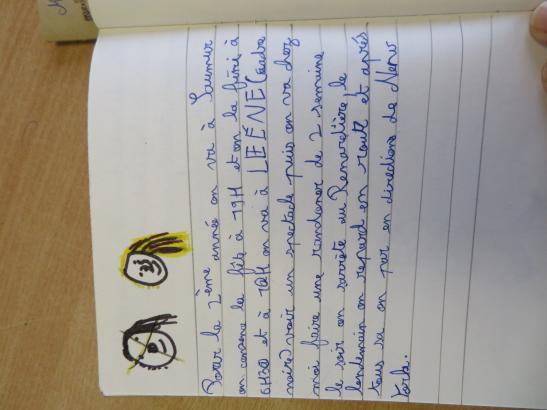 Pour la 2ème année on va à Saumur
on comence la fête à 19H et on la fini à
6H30 et à 10H on va à LEÉNE (cadre
noire) voir un spectacle puis on va chez
moi faire une randoner de 2 semaine
le soir on sarrête au Renardière, le
lendemain on repard en route et après
tous sa on par en directions de New
York.